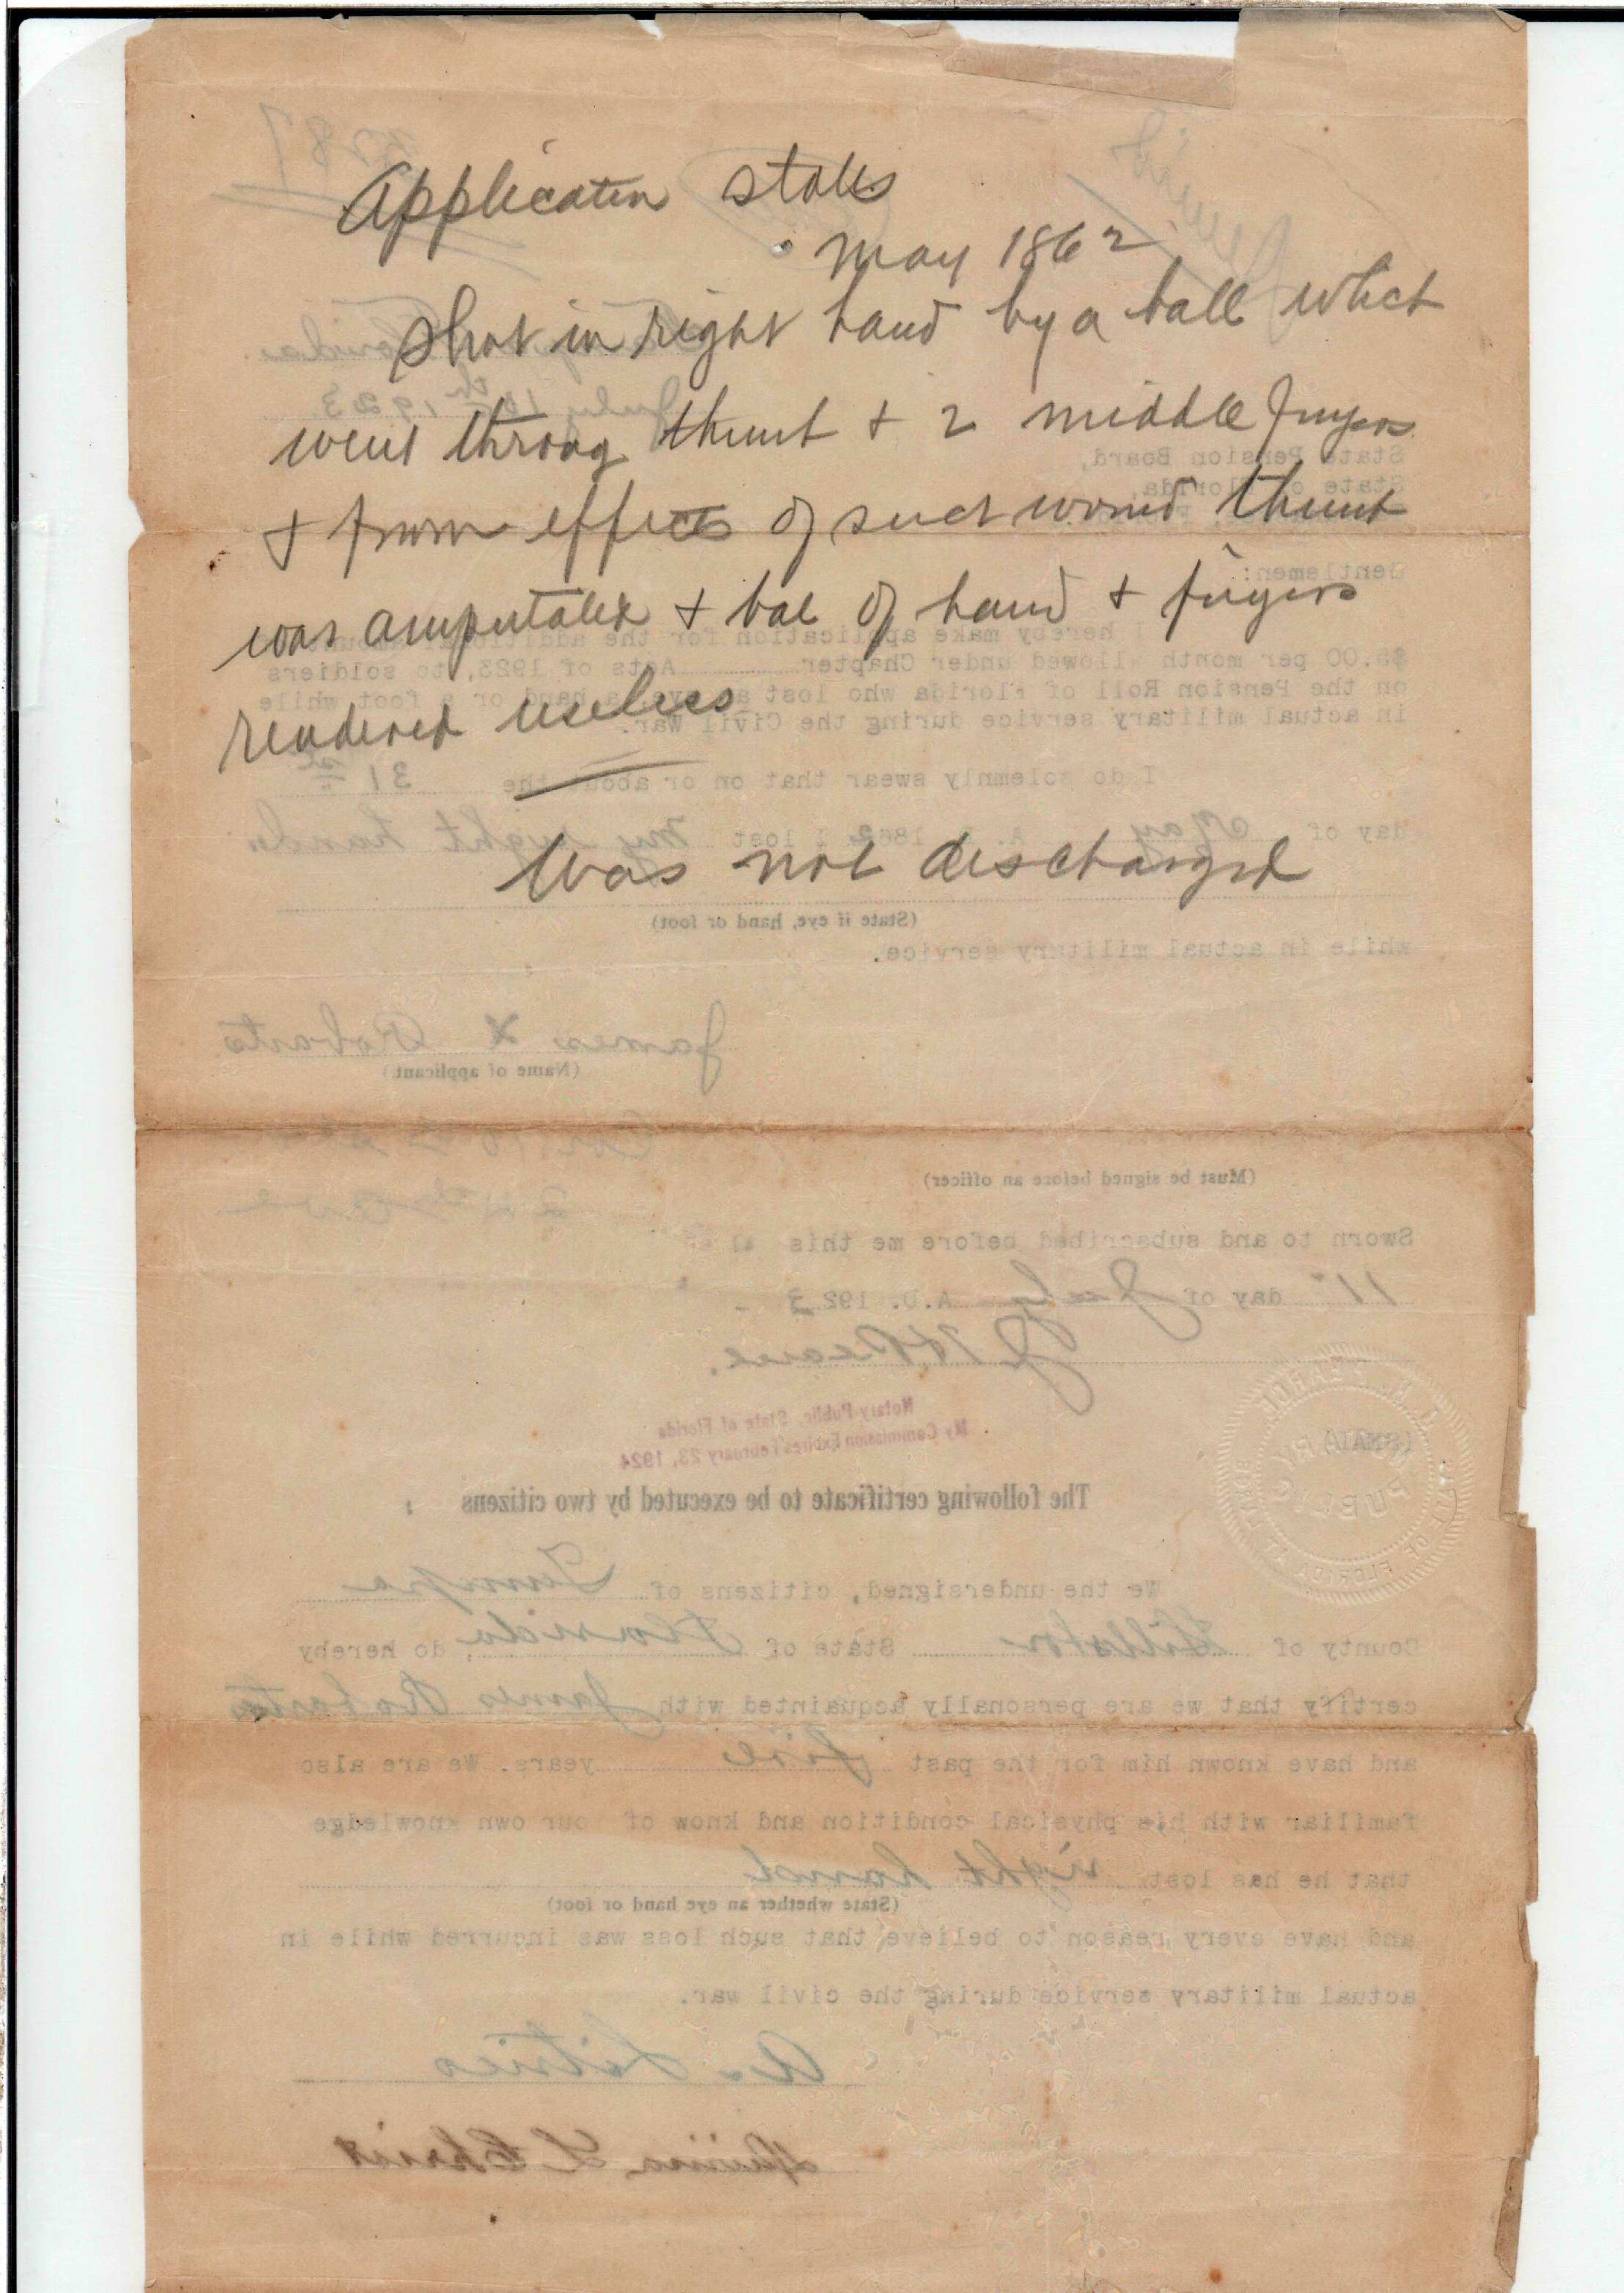 Application states
May 1862
Shot in right hand by a ball which
went throug thumb + 2 middle fingers
+ from effects of such wound thumb
was amputated + bal of hand + fingers
rendered useless
Was not discharged
July 10th 1923
State Pension Board,
State of Florida,
Gentlemen:
I hereby make application for the additional amount
$5.00 per month allowed under Chapter Acts of 1923, to soldiers
on the Pension Roll of Florida who lost an eye, a hand or a foot while
in actual military service during the Civil War.
I do solemnly swear that on or about the 31st
day of May A. D. 1862 I lost my right hand
(State if eye, hand or foot)
while in actual military service.
James X Robarts
(Name of applicant)
(Must be signed before an officer)
Sworn to and subscribed before me this
11" day of July A.D. 1923
Notary Public, State of Florida
My Commission Expires February 23, 1924
(SEAL)
NOTARY PUBLIC
The following certificate to be executed by two citizens :
We the undersigned, citizens of Tampa
County of Hillsbr State of Florida, do hereby
certify that we are personally acquainted with James Robarts
and have known him for the past five years. We are also
familiar with his physical condition and know of our own knowledge
that he has lost right hand
(State whether an eye hand or foot)
and have every reason to believe that such loss was incurred while in
actual military service during the civil war.